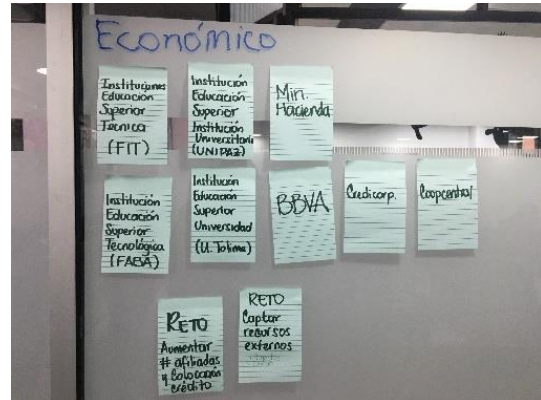 Económico
Instituciones
Educación
Superior
Técnica
(FIT)
Institución
Educación
Superior
Institución
Universitaria
(UNIPAZ)
Min.
Hacienda
Institución
Educación
Superior
Tecnológica
(FABA)
Institución
Educación
Superior
Universidad
(U. Tolima)
BBVA
Credicorp.
Coopcentral
RETO
Aumentar
# afiliadas
y Colocación
crédito
RETO
Captar
recursos
externos